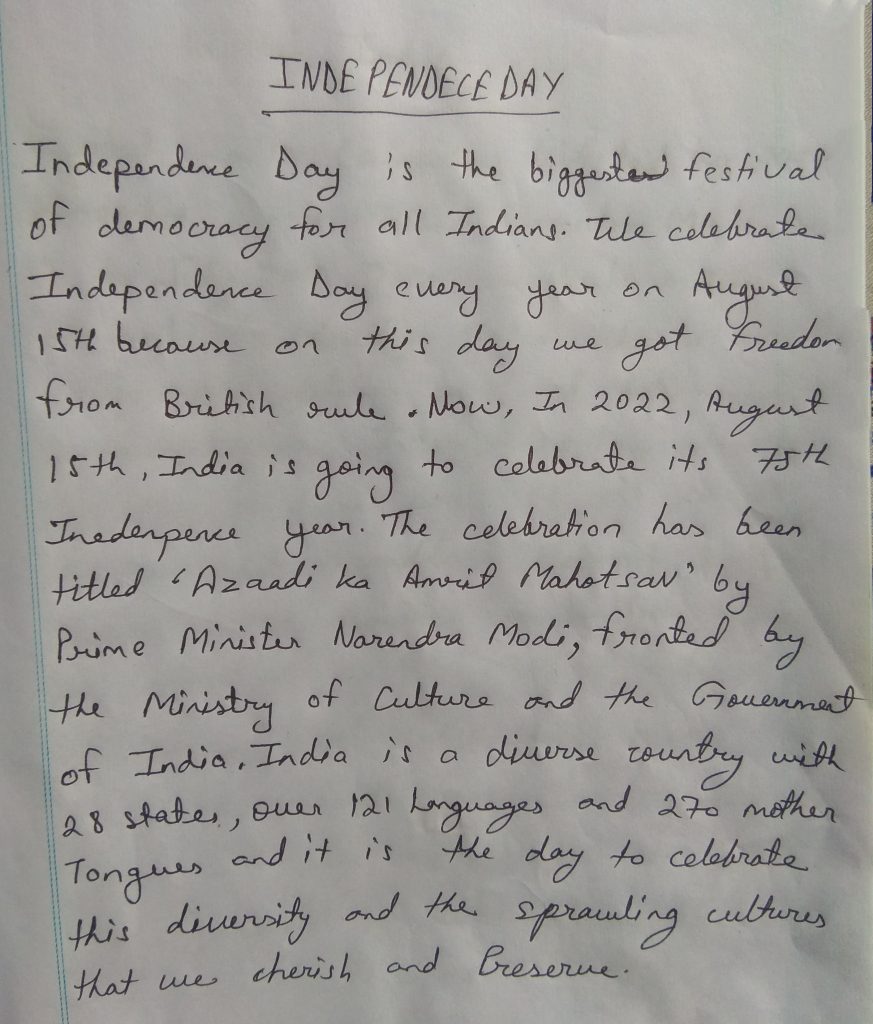 INDEPENDECE DAY
Independence Day is the biggest festival
of democracy for all Indians. We celebrate
Independence Day every year on August
15th because on this day we got freedom
from British rule. Now, In 2022, August
15th, India is going to celebrate its 75th
Inedenpence year. The celebration has been
titled 'Azaadi ka Amrit Mahotsav' by
Prime Minister Narendra Modi, fronted by
the Ministry of Culture and the Government
of India. India is a diverse country with
28 states, over 121 languages and 270 mother
Tongues and it is the day to celebrate
this diversity and the sprawling cultures
that we cherish and Preserve.